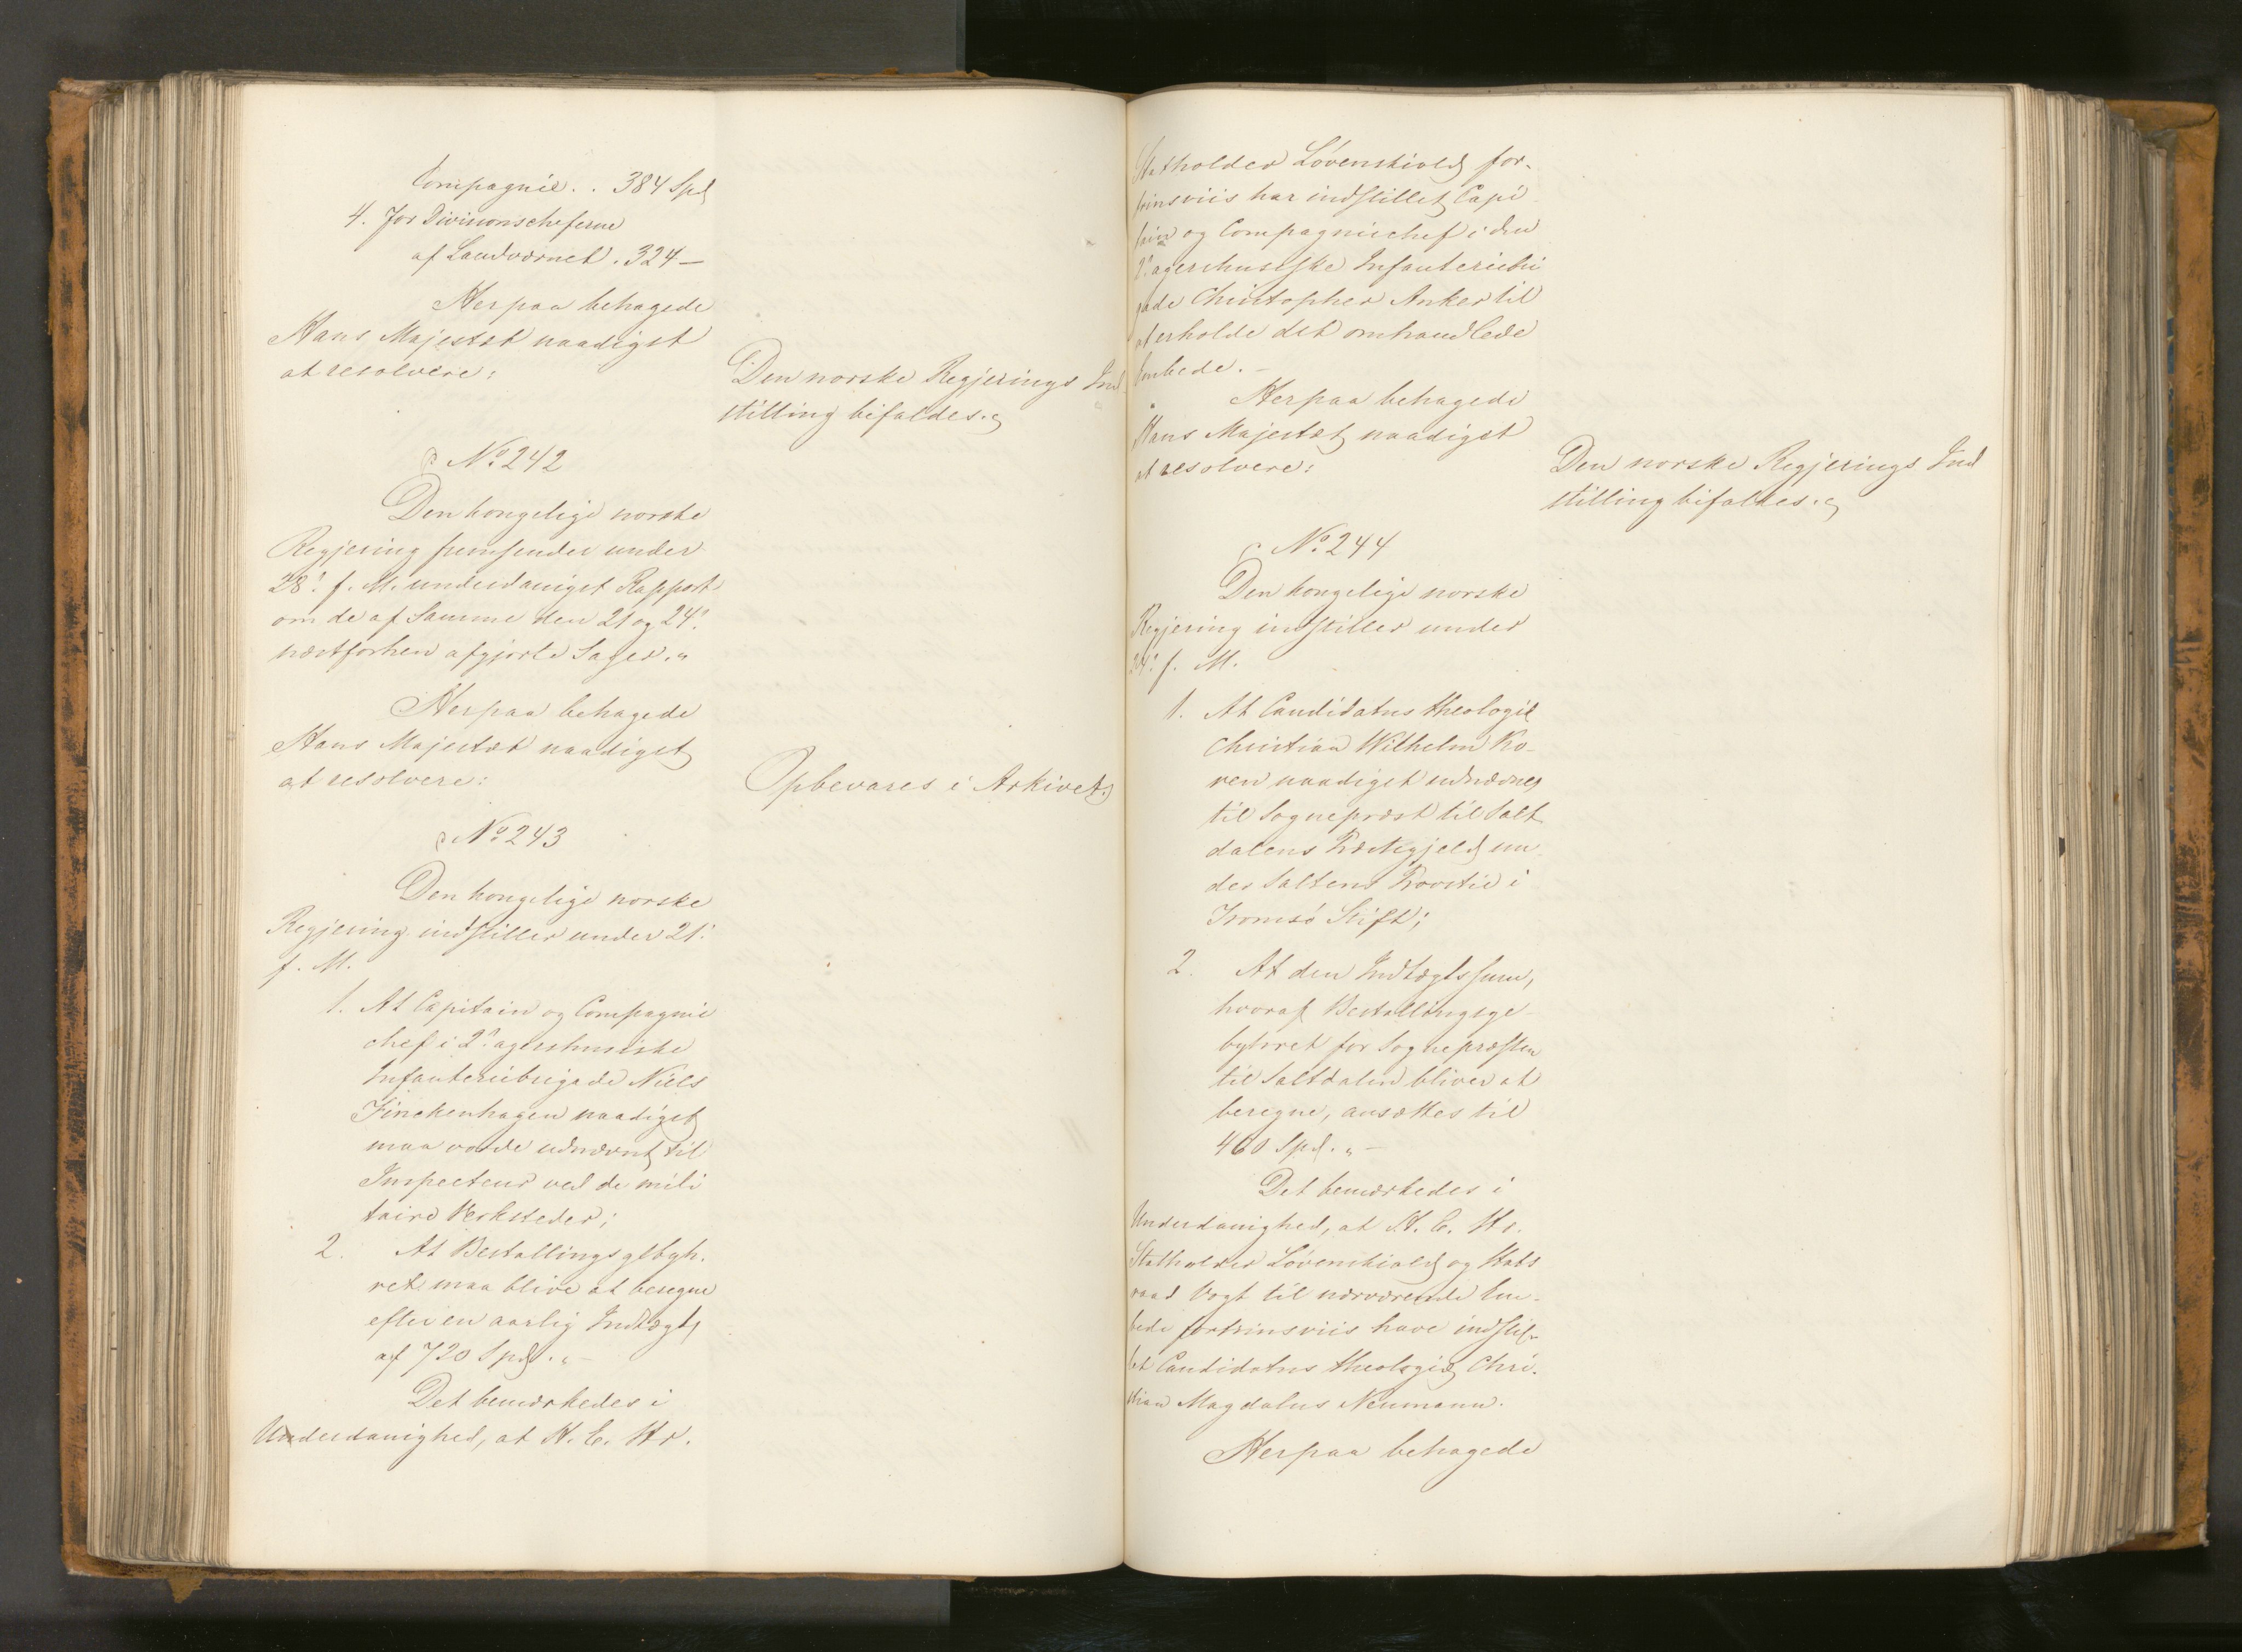 Compagnie . . 384 Spd
4. For Divisionscheferne
af Landværnet . 324 —
Herpaa behagede
Hans Majestæt naadigst
at resolvere:
Den norske Regjerings Ind
stilling bifaldes.
No 242
Den kongelige norske
Regjering fremsender under
28. f. M. underdanigst Rapport
om de af Samme den 21 og 24.
næstforhen afgjorte Sager.
Herpaa behagede
Hans Majestæt naadigst
at resolvere:
Opbevares i Arkivet.
No 243
Den kongelige norske
Regjering indstiller under 21.
f. M.
1. At Capitain og Compagni
chef i 2. agershusiske
Infanteriebrigade Niels
Finckenhagen naadigst
maa vorde udnævnt til
Inspecteur ved de mili
taire Verksteder;
2. At Bestallingsgebyh.
ret maa blive at beregne
efter en aarlig Indtægt
af 720 Spd. —
Det bemærkedes i
Underdanighed, at H. E. Hr.
Statholder Løvenskiold for-
trinsviis har indstillet Capi
tain og Compagnichef i den
2. agershusiske Infanteriebri
gade Christopher Anker til
at erholde det omhandlede
Embede. —
Herpaa behagede
Hans Majestæt naadigst
at resolvere:
Den norske Regjerings Ind
stilling bifaldes.
No 244
Den kongelige norske
Regjering indstiller under
24. f. M.
1. At Candidatus theologiæ
Christian Wilhelm Ko-
ren naadigst udnævnes
til Sognepræst til Salt
dalens Præstegjeld un
der Saltens Provstie i
Tromsø Stift;
2. At den Indtægtssum,
hvoraf Bestallingsge-
byhret for Sognepræsten
til Saltdalen bliver at
beregne, ansættes til
400 Spd. —
Det bemærkedes i
Underdanighed, at H. E. Hr.
Statholder Løvenskiold og Stats
raad Vogt til nærværende Em-
bede fortrinsviis have indstil-
let Candidatus theologiæ Chri-
stian Magdalus Neumann.
Herpaa behagede